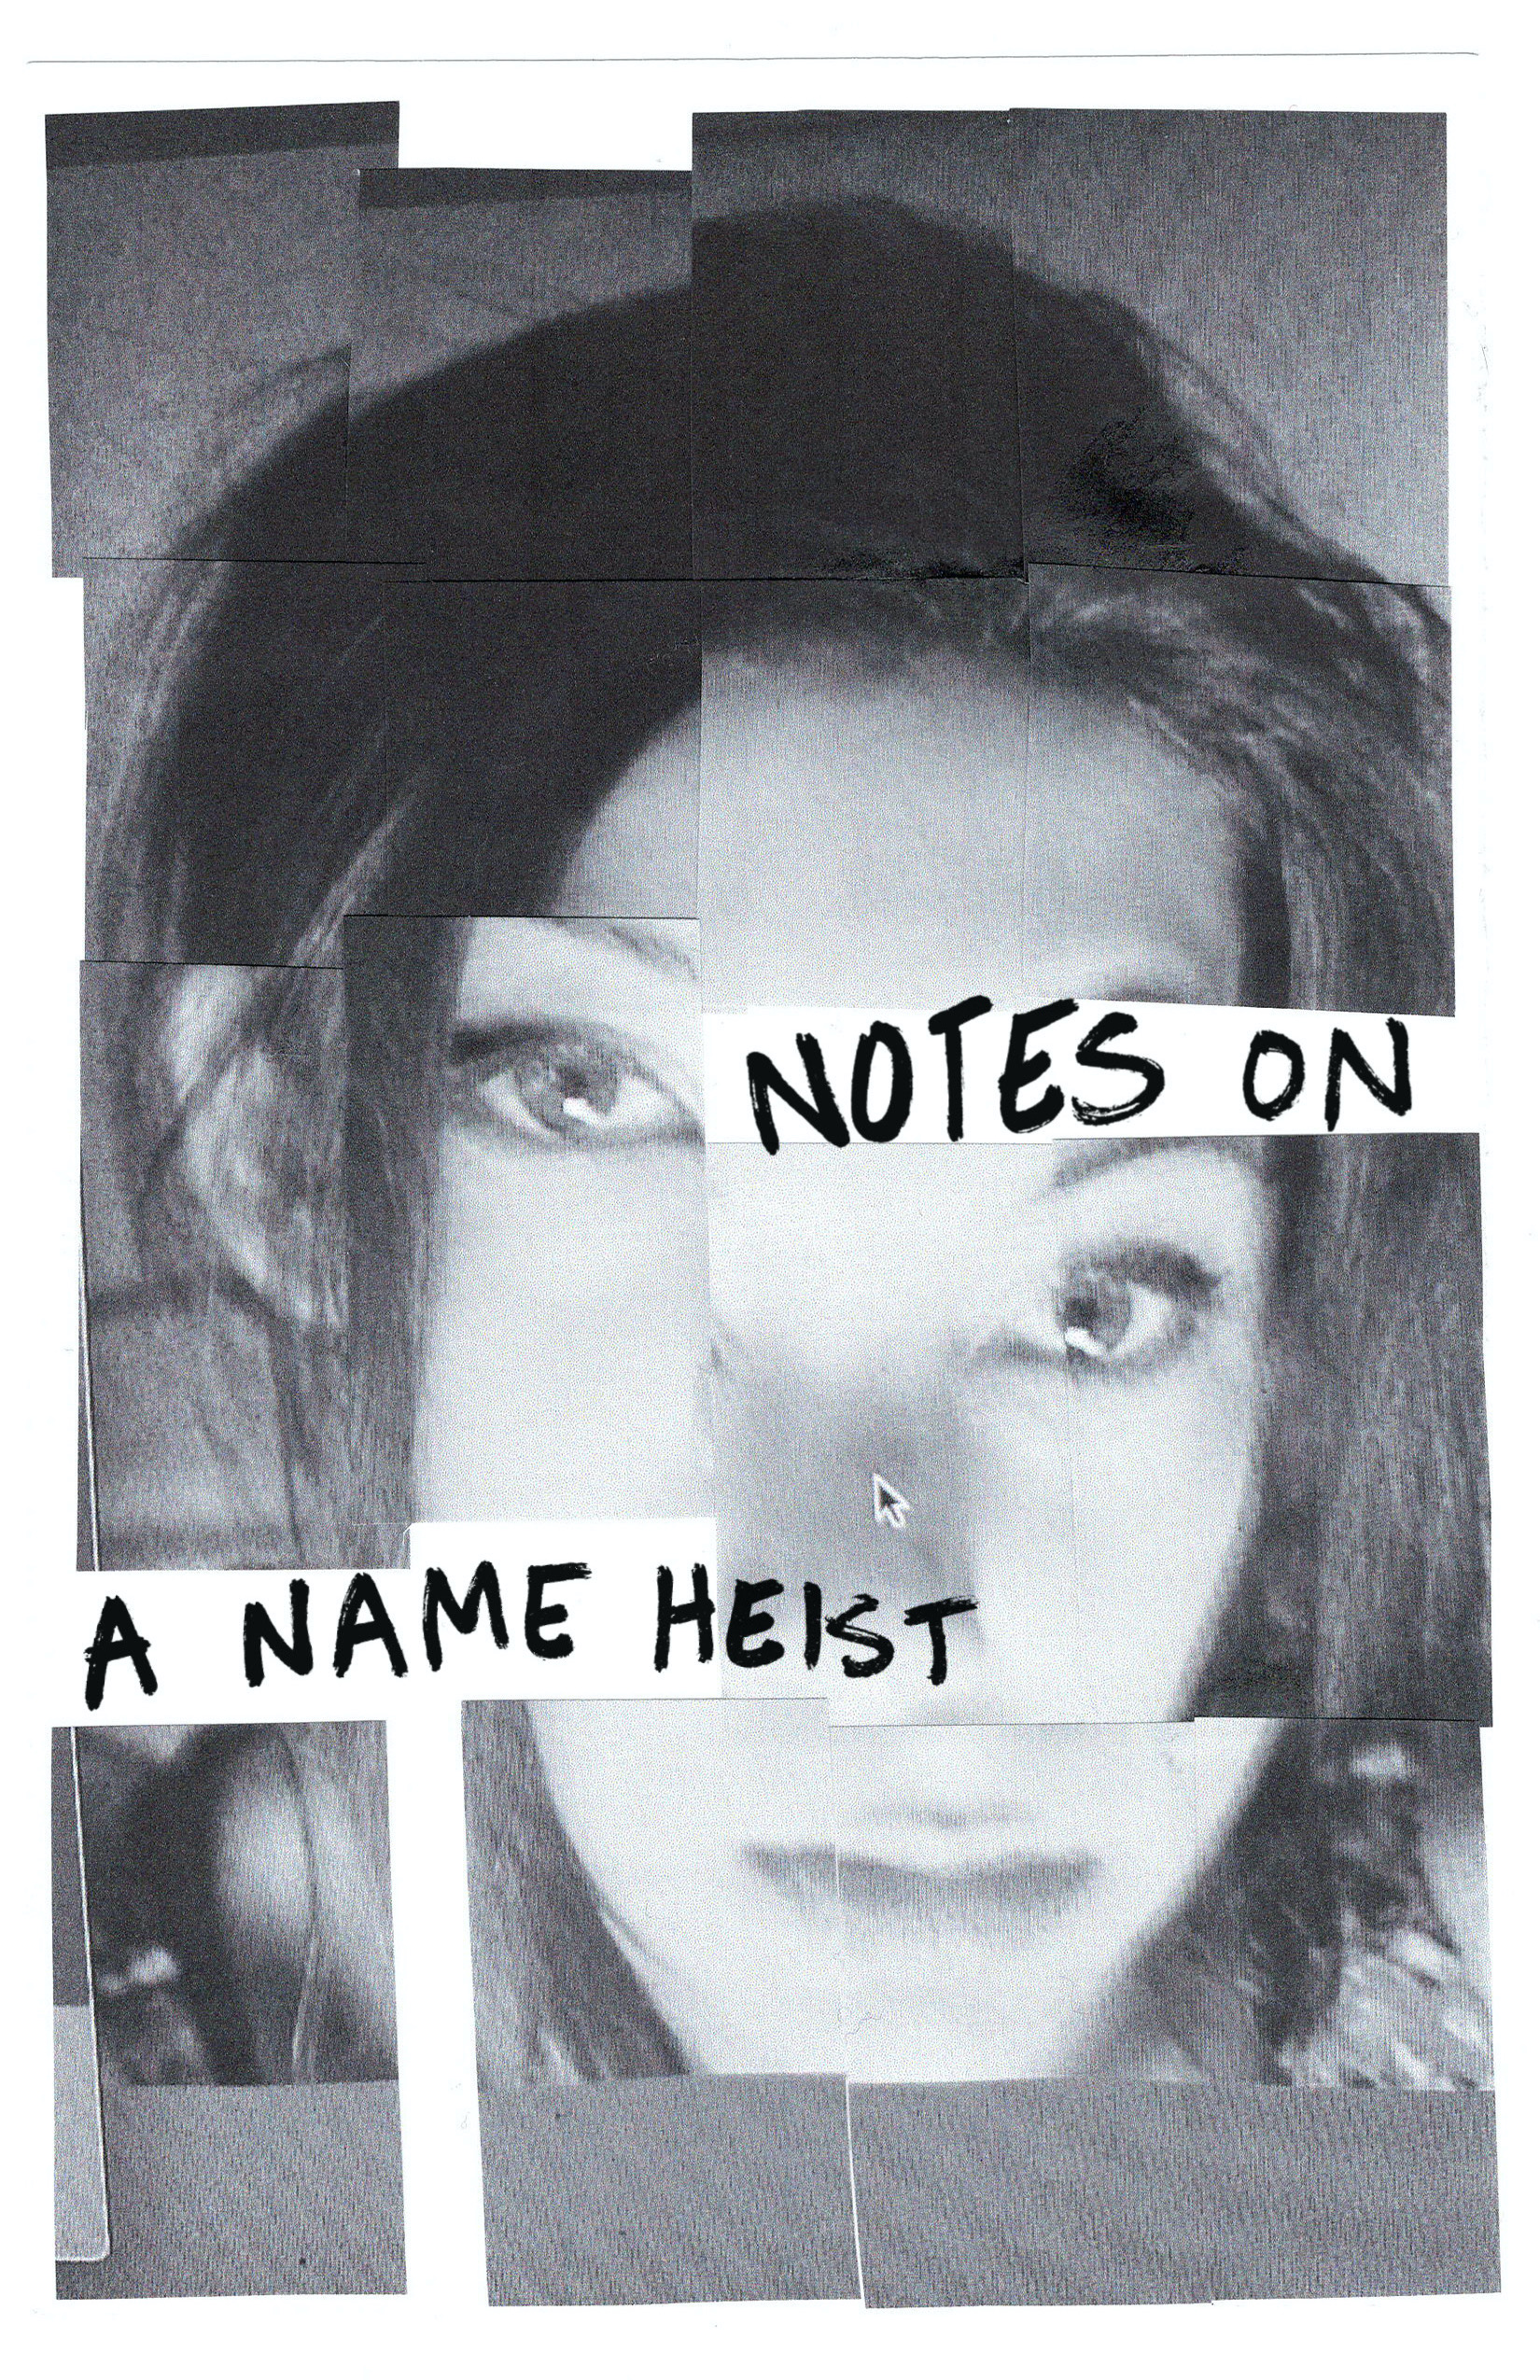 NOTES ON
A NAME HEIST